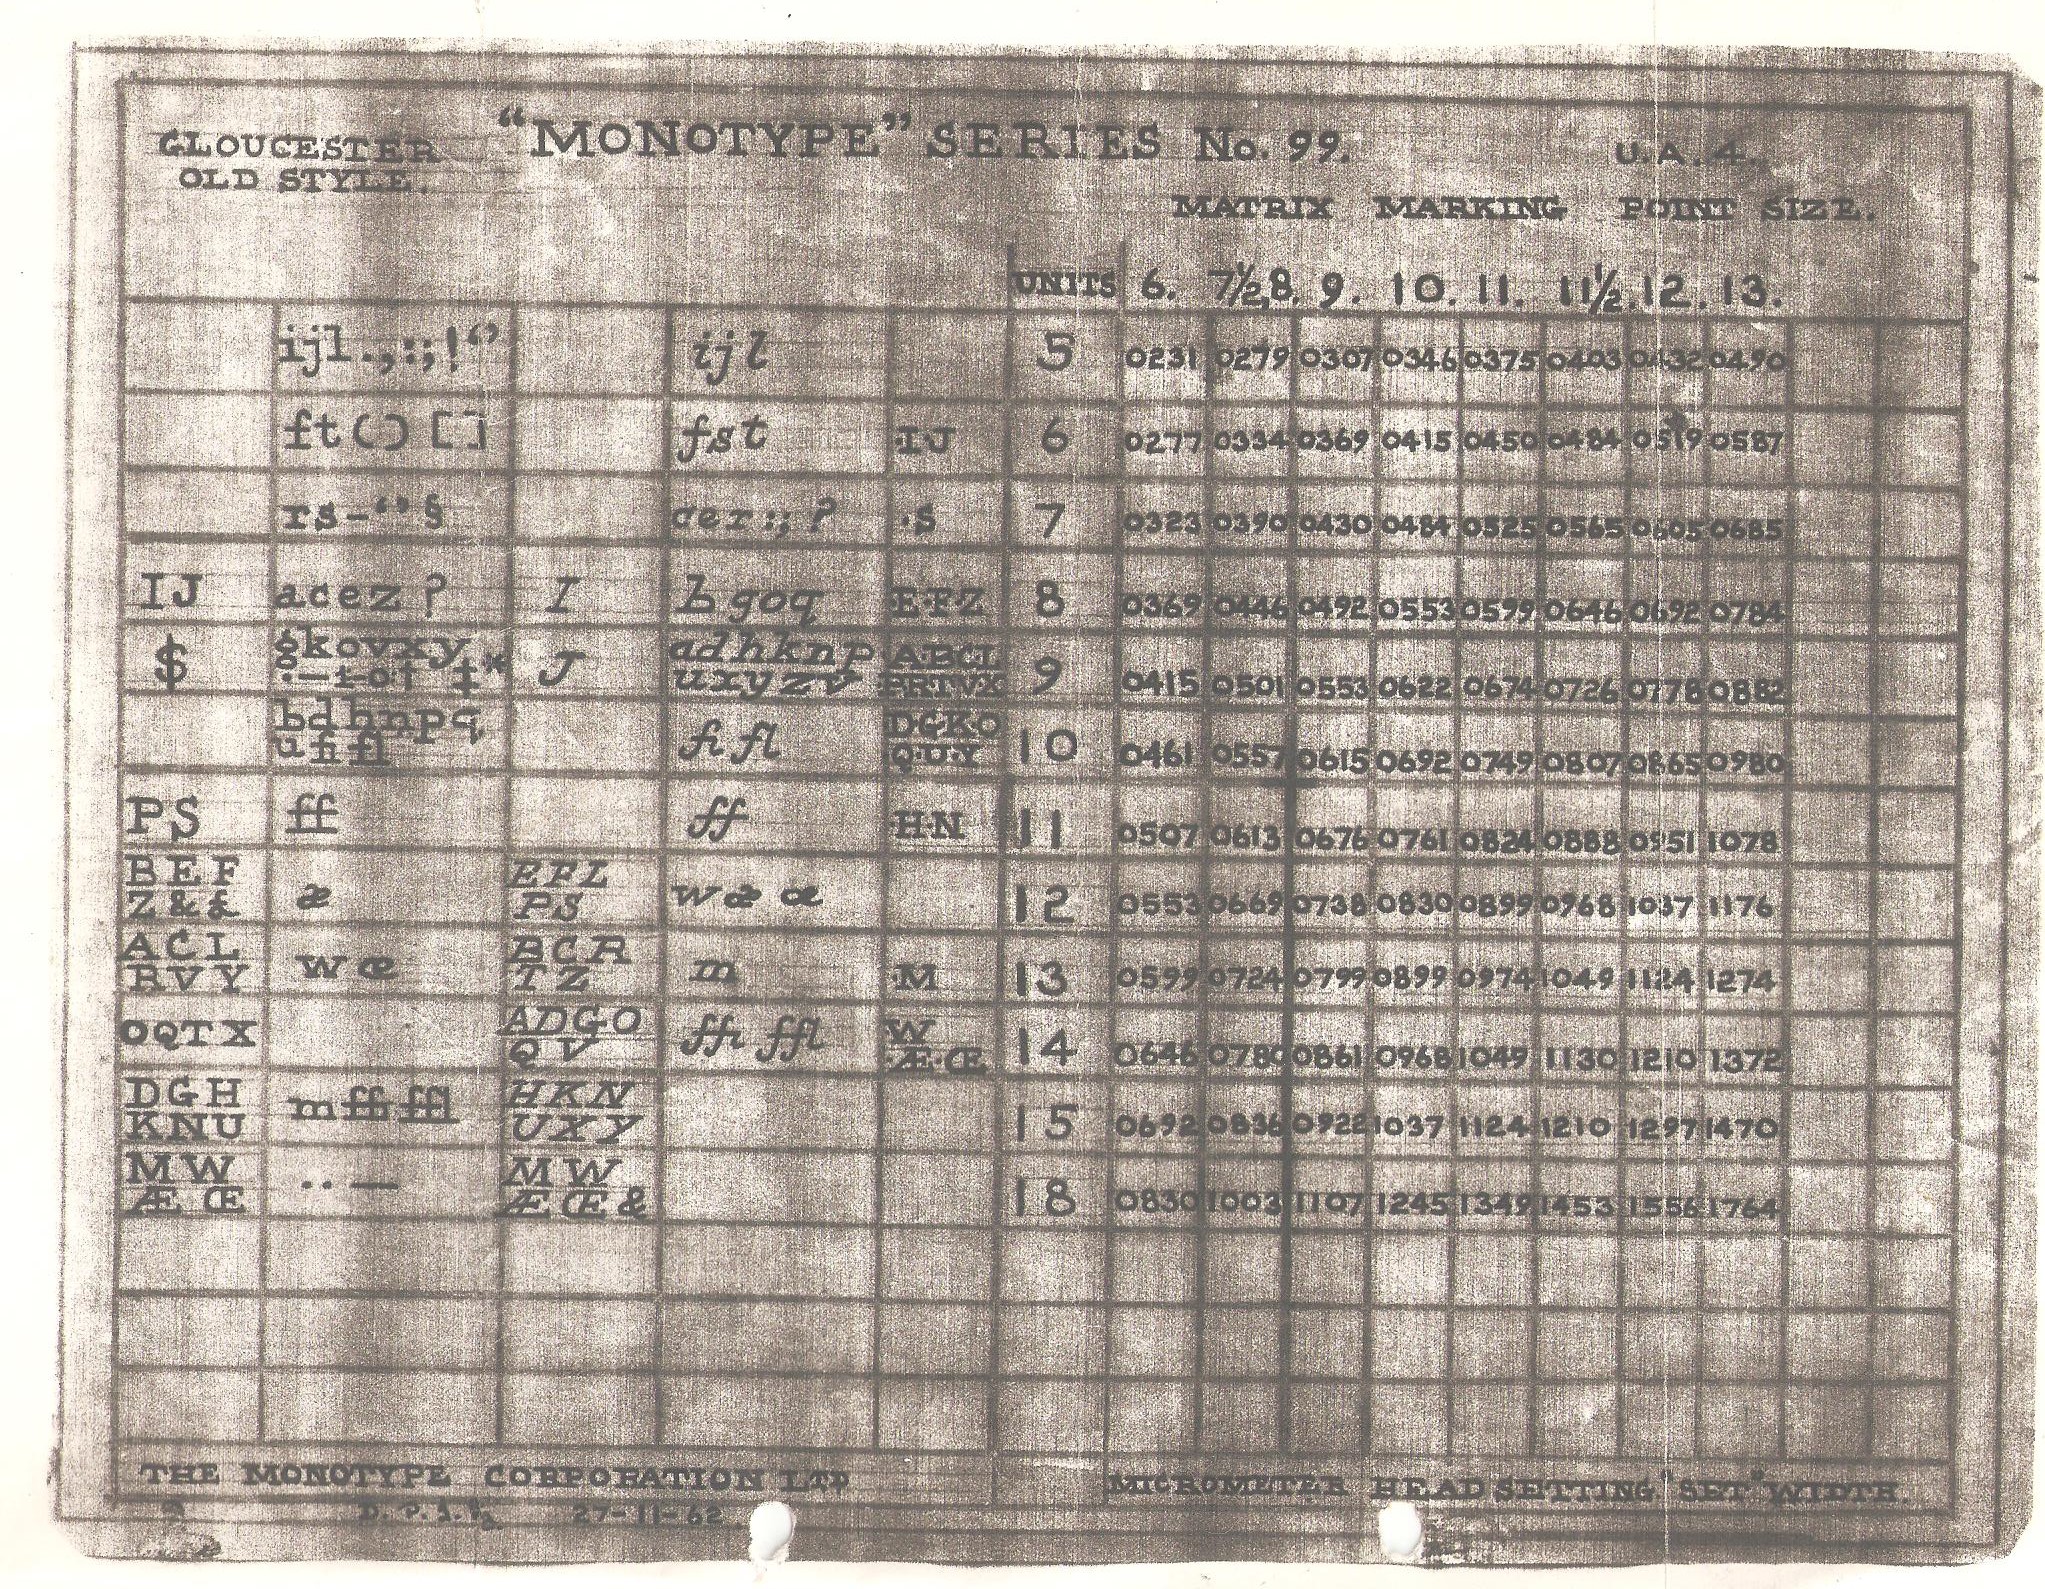 GLOUCESTER OLD STYLE.
"MONOTYPE" SERIES No. 99.
U.A.4.
MATRIX MARKING POINT SIZE.
UNITS 6. 7½,8. 9. 10. 11. 11½.12. 13.
ijl.,:;!‘’ ijl 5 0231 0279 0307 0346 0375 0403 0432 0490
ft()[] fst IJ 6 0277 0334 0369 0415 0450 0484 0519 0587
rs-“”§ cer:;? S 7 0323 0390 0430 0484 0525 0565 0605 0685
IJ acez? I bgoq E·F·Z 8 0369 0446 0492 0553 0599 0646 0692 0784
$ gkovxy J adhknp uxyzv ABCL PRTVX 9 0415 0501 0553 0622 0674 0726 0778 0882
bdhnpq ufifl fi fl DGKO Q·U·Y 10 0461 0557 0615 0692 0749 0807 0865 0980
PS ff ff H·N 11 0507 0613 0676 0761 0824 0888 0951 1078
BEF Z&£ æ EFL PS wæ œ 12 0553 0669 0738 0830 0899 0968 1037 1176
ACL RVY w œ BCR TZ m ·M 13 0599 0724 0799 0899 0974 1049 1124 1274
OQTX ADGO QV ffi ffl W ÆŒ 14 0646 0780 0861 0968 1049 1130 1210 1372
DGH KNU mffiffl HKN UXY 15 0692 0836 0922 1037 1124 1210 1297 1470
MW Æ Œ ..— MW ÆŒ& 18 0830 1003 1107 1245 1349 1453 1556 1764
THE MONOTYPE CORPORATION LTD
27-11-62
MICROMETER HEAD SETTING "SET" WIDTH.